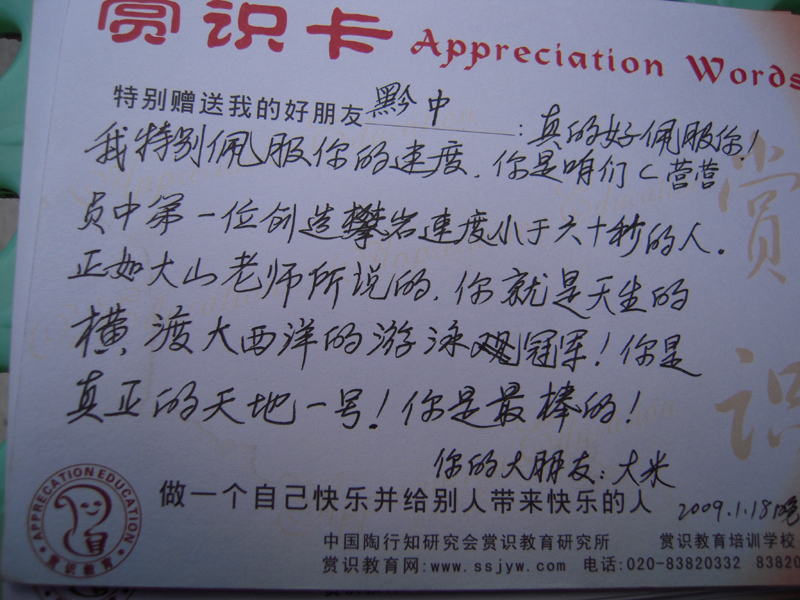 赏识卡 Appreciation Words
特别赠送我的好朋友黔中：真的好佩服你！
我特别佩服你的速度，你是咱们C营营
员中第一位创造攀岩速度小于六十秒的人。
正如大山老师所说的，你就是天生的
横渡大西洋的游泳冠军！你是
真正的天地一号！你是最棒的！
你的大朋友：大米
做一个自己快乐并给别人带来快乐的人
2009.1.18晚
中国陶行知研究会赏识教育研究所 赏识教育培训学校
赏识教育网:www.ssjyw.com 电话:020-83820332 83820
APPRECATION EDUCATION
赏识教育
赏识